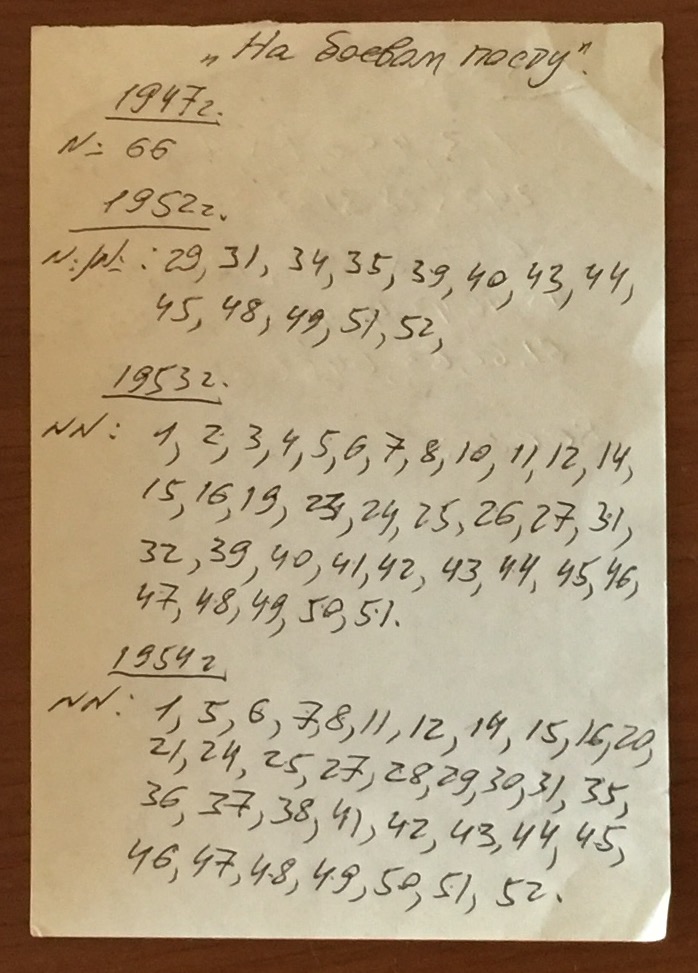 „На боевом посту".
1947г.
№ 66
1952г.
№№: 29, 31, 34, 35, 39, 40, 43, 44,
45, 48, 49, 51, 52,
1953г.
NN: 1, 2, 3, 4, 5, 6, 7, 8, 10, 11, 12, 14,
15, 16, 19, 24, 25, 26, 27, 31,
32, 39, 40, 41, 42, 43, 44, 45, 46,
47, 48, 49, 50, 51.
1954г
NN: 1, 5, 6, 7, 8, 11, 12, 14, 15, 16, 20,
21, 24, 25, 27, 28, 29, 30, 31, 35,
36, 37, 38, 41, 42, 43, 44, 45,
46, 47, 48, 49, 50, 51, 52.